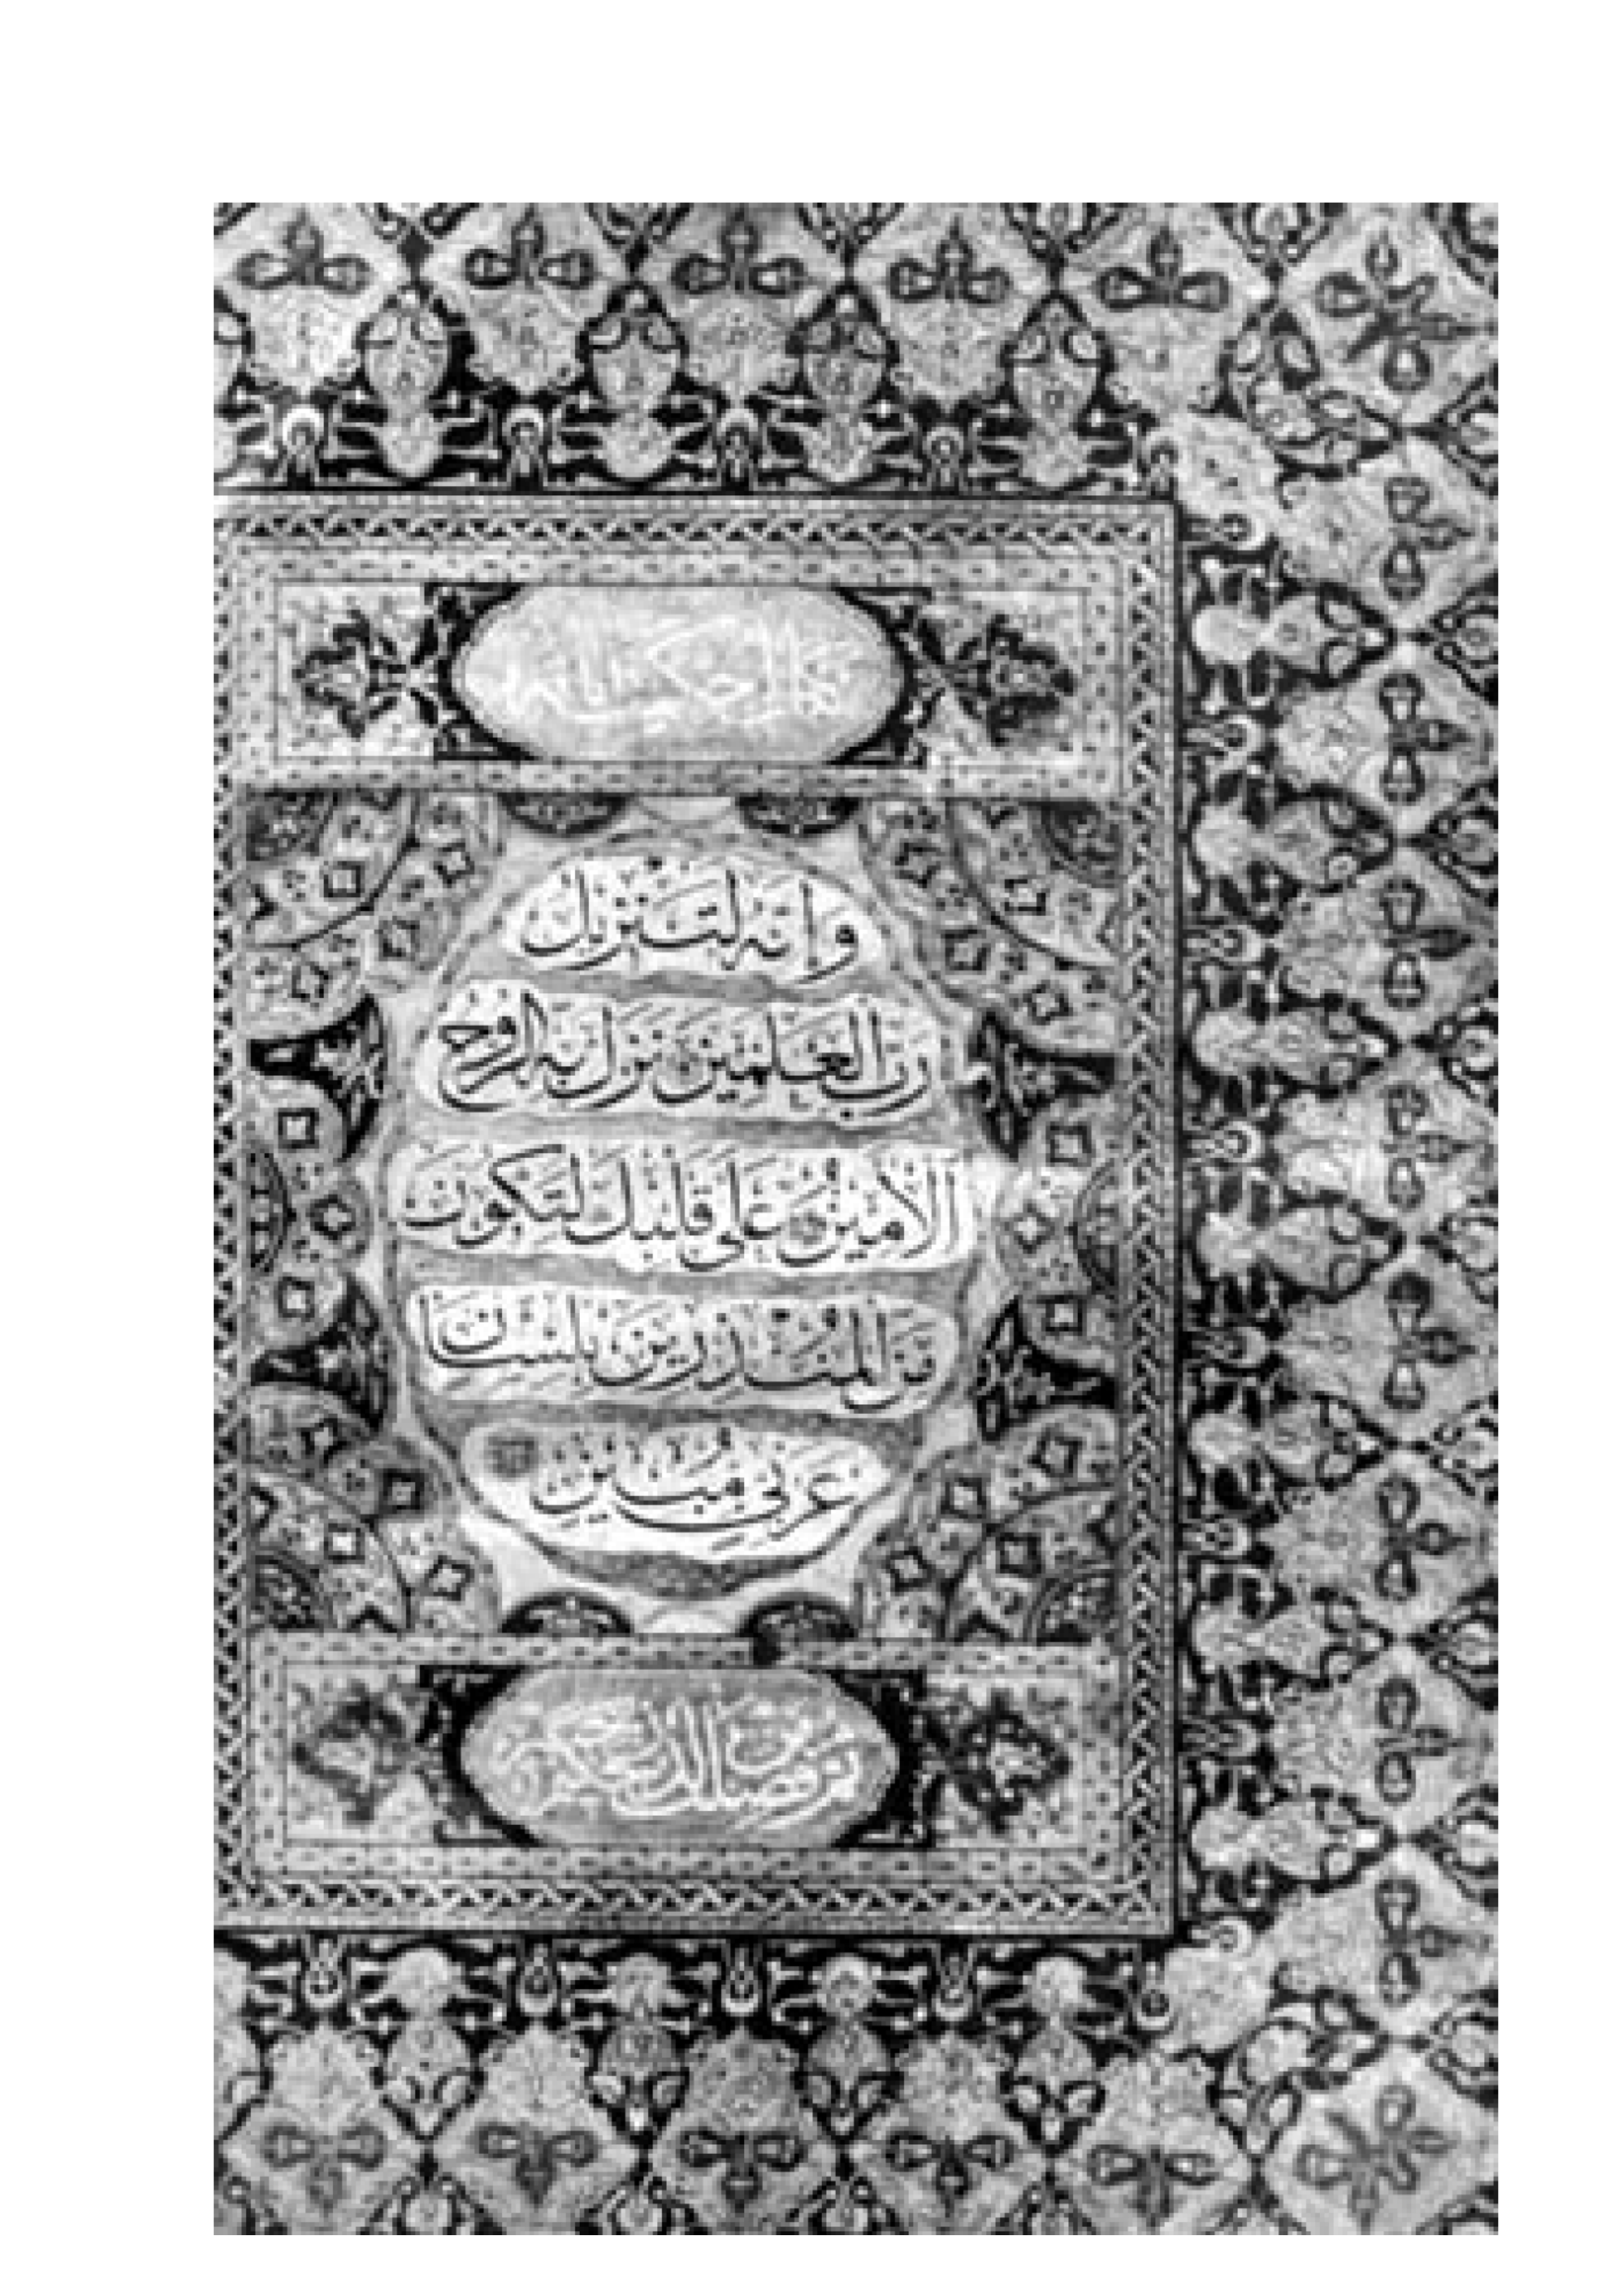 وَإِنَّهُ لَتَنْزِيلُ
رَبِّ الْعَلَمِينَ نَزَلَ بِهِ الرُّوحُ
الْأَمِينُ عَلَى قَلْبِكَ لِتَكُونَ
مِنَ الْمُنْذِرِينَ بِلِسَانٍ
عَرَبِيٍّ مُبِينٍ